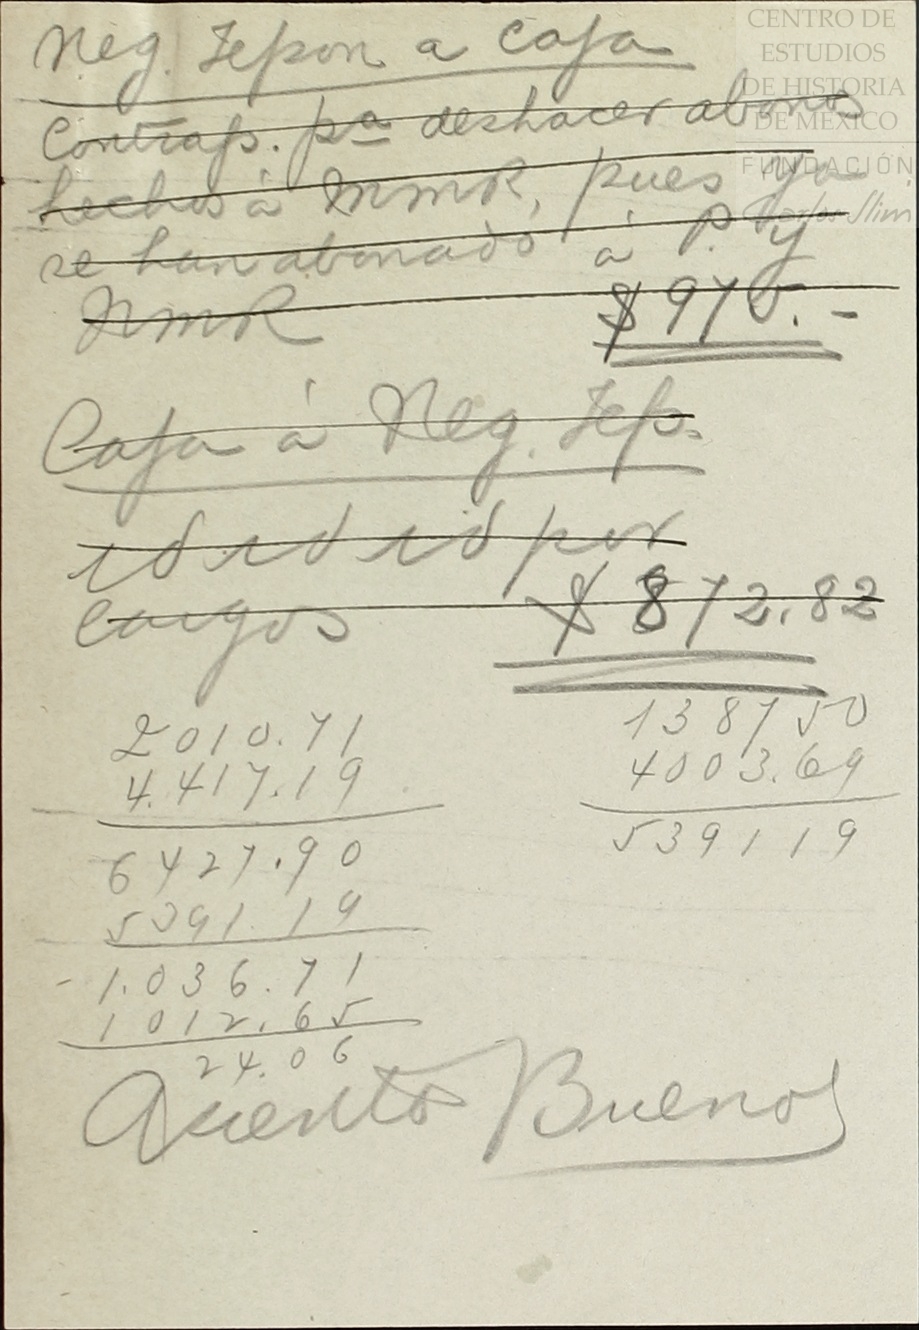 CENTRO DE
ESTUDIOS
DE HISTORIA
DE MÉXICO
FUNDACIÓN
Carlos Slim
Neg. Tepon a Caja
Contrap. pa deshacer abonos
hechos á MMR, pues ya
se han abonado á P. y
NMR $970.-
Caja á Neg. Tep.
id id id por
cargos $872.82
2010.71
4.417.19
6427.90
5391.19
-1.036.71
1012.65
24.06
138750
4003.69
539119
Asiento Bueno